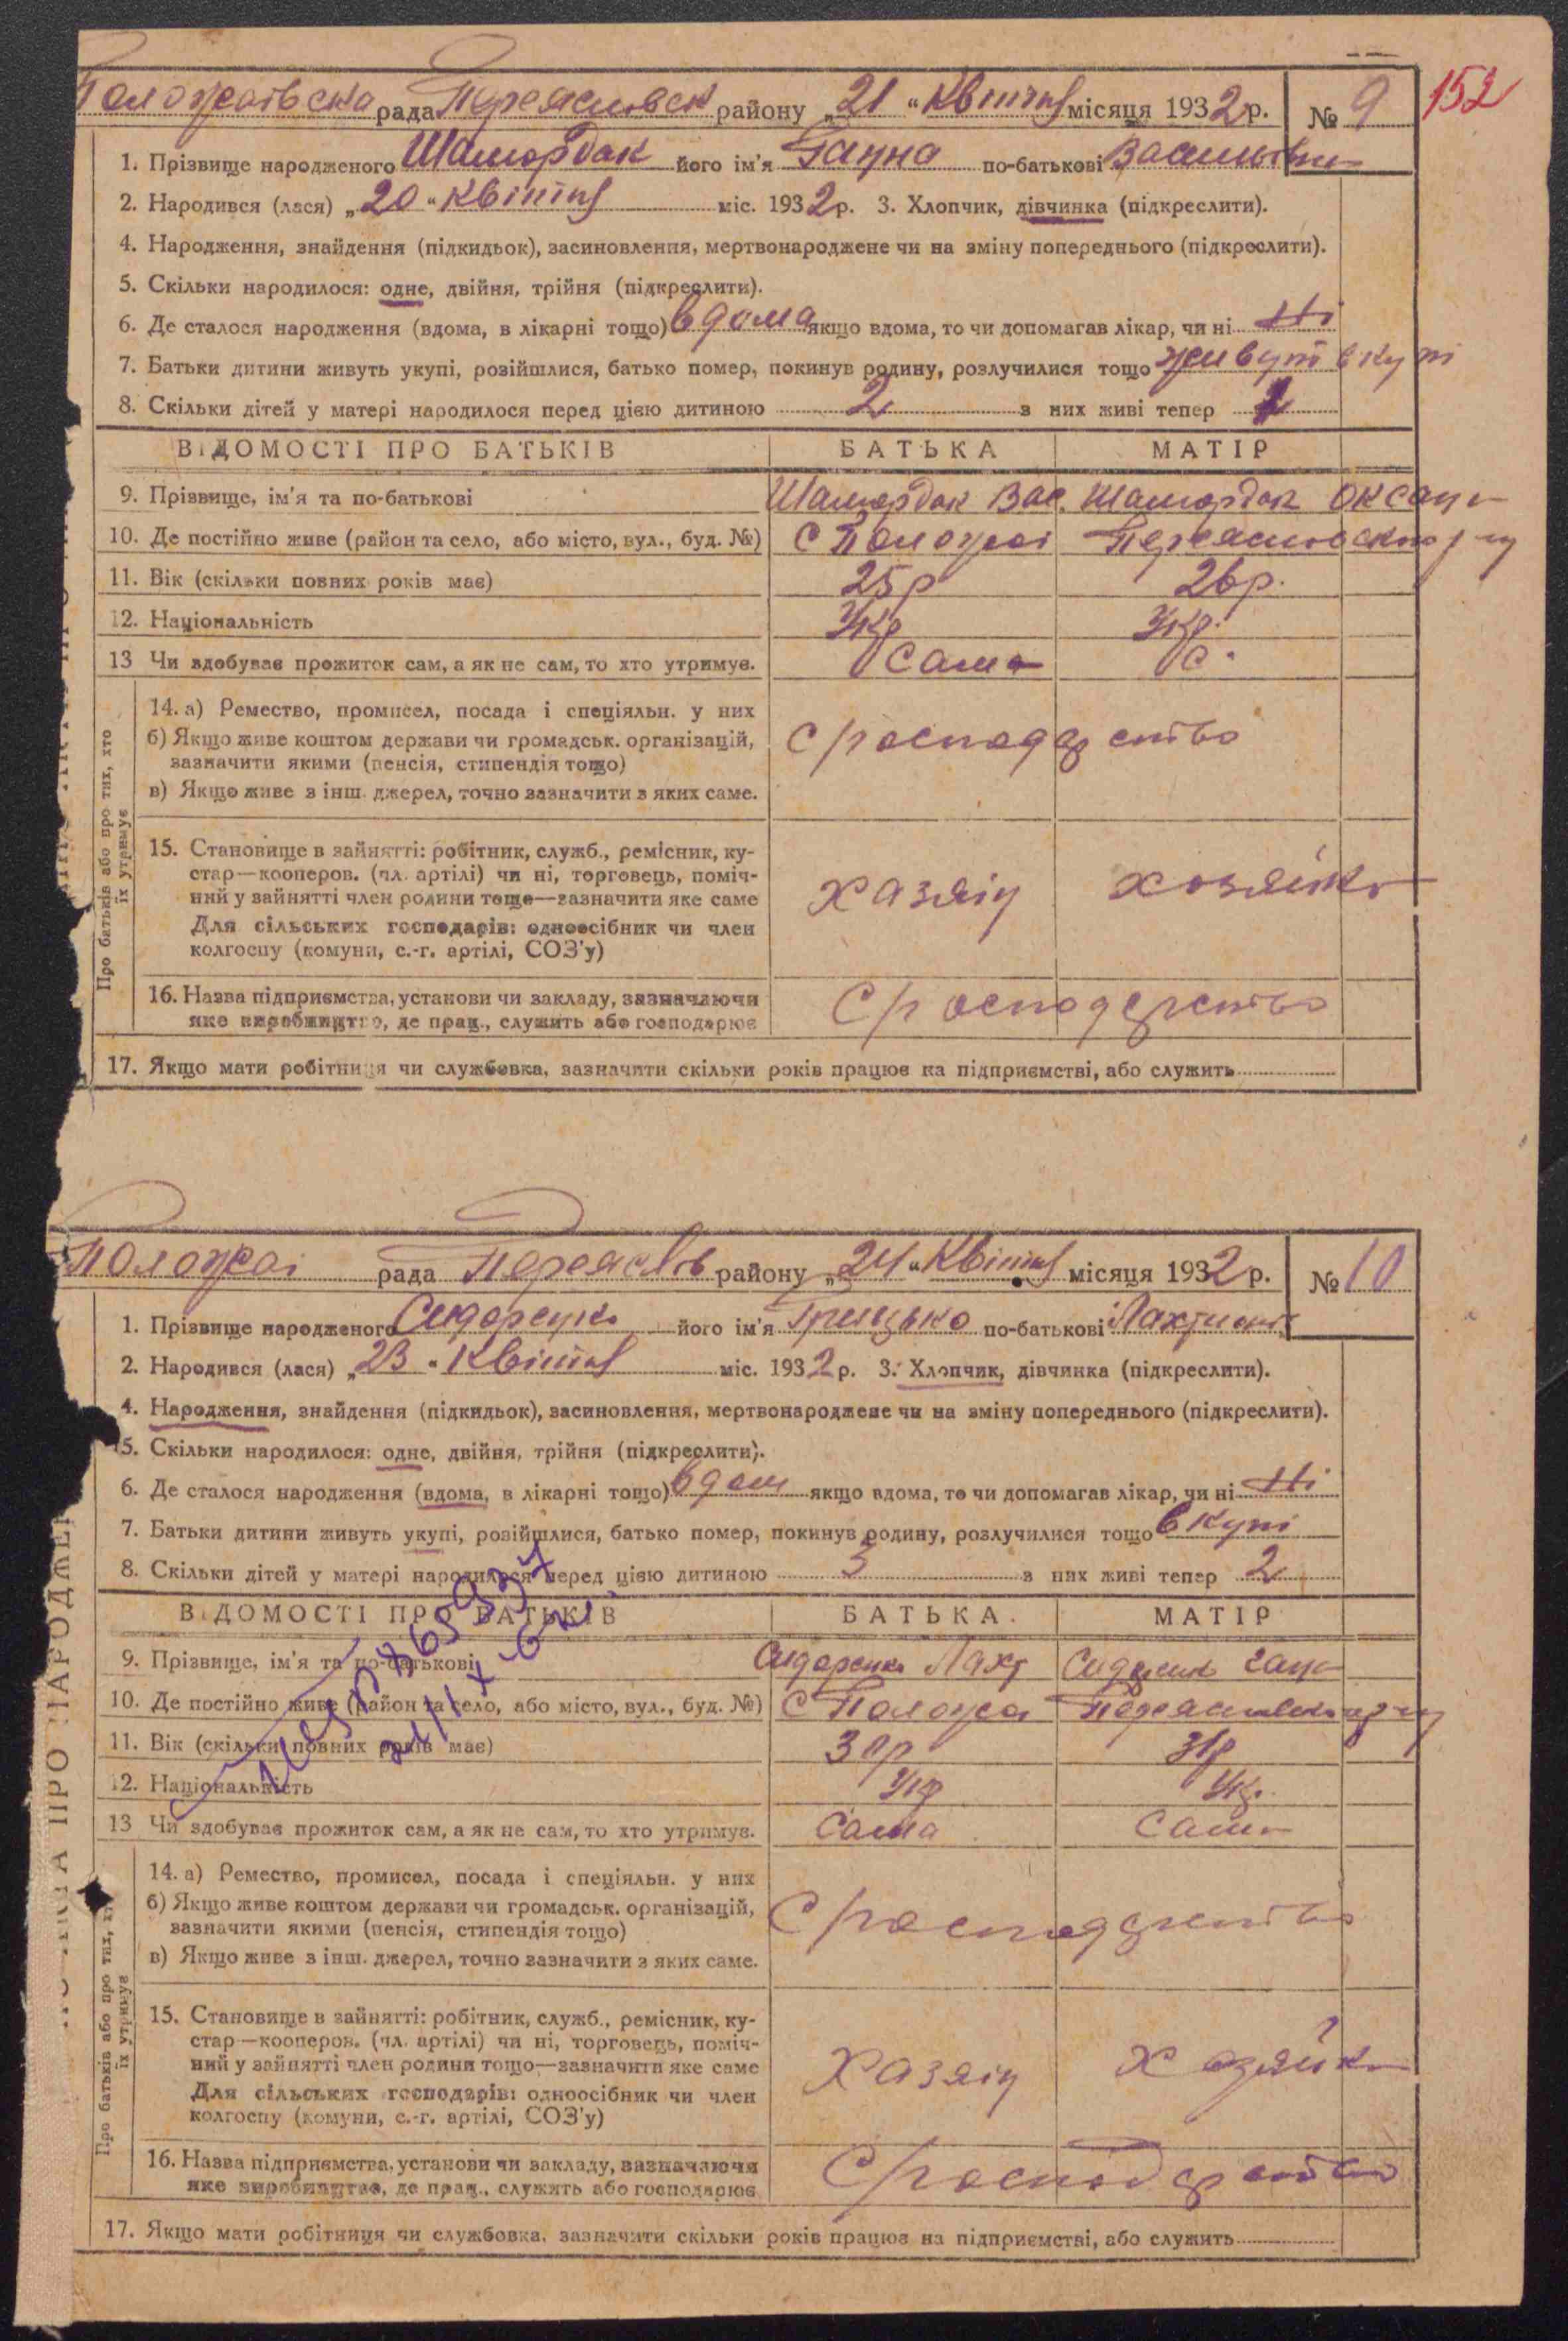 Положаївська рада Переяславськ району „21“ Квітня місяця 1932 р. № 9 152
1. Прізвище народженого Шамордак його ім'я Ганна по-батькові
2. Народився (лася) „20“ Квітня міс. 1932 р. 3. Хлопчик, дівчинка (підкреслити).
4. Народження, знайдення (підкидьок), засиновлення, мертвонароджене чи на зміну попереднього (підкреслити).
5. Скільки народилося: одне, двійня, трійня (підкреслити).
6. Де сталося народження (вдома, в лікарні тощо) вдома якщо вдома, то чи допомагав лікар, чи ні Ні
7. Батьки дитини живуть укупі, розійшлися, батько помер, покинув родину, розлучилися тощо живут вкупі
8. Скільки дітей у матері народилося перед цією дитиною 2 з них живі тепер 1
ВІДОМОСТІ ПРО БАТЬКІВ БАТЬКА МАТІР
9. Прізвище, ім'я та по-батькові Шамордак Вас. Шамордак Оксана
10. Де постійно живе (район та село, або місто, вул., буд. №) С Положаї Переяславського р-ну
11. Вік (скільки повних років має) 25р 26р.
12. Національність Укр Укр.
13 Чи здобуває прожиток сам, а як не сам, то хто утримує. Сама С.
Про батьків або про тих, хто їх утримує
14. а) Ремество, промисел, посада і спеціяльн. у них
б) Якщо живе коштом держави чи громадськ. організацій,
зазначити якими (пенсія, стипендія тощо) с/господарство
в) Якщо живе з інш. джерел, точно зазначити з яких саме.
15. Становище в зайнятті: робітник, служб., ремісник, ку-
стар—кооперов. (чл. артілі) чи ні, торговець, поміч-
ний у зайнятті член родини тоще—зазначити яке саме хазяїн хозяйка
Для сільських господарів: одноосібник чи член
колгоспу (комуни, с.-г. артілі, СОЗ'у)
16. Назва підприємства, установи чи закладу, зазначаючи
яке виробництво, де прац., служить або господарює С/господарство
17. Якщо мати робітниця чи службовка, зазначити скільки років працює на підприємстві, або служить
Положаї рада Переяслів району „24“ Квітня місяця 1932 р. № 10
1. Прізвище народженого Сидоренко його ім'я Грицько по-батькові
2. Народився (лася) „23“ Квітня міс. 1932 р. 3. Хлопчик, дівчинка (підкреслити).
4. Народження, знайдення (підкидьок), засиновлення, мертвонароджене чи на зміну попереднього (підкреслити).
5. Скільки народилося: одне, двійня, трійня (підкреслити).
6. Де сталося народження (вдома, в лікарні тощо) вдом якщо вдома, то чи допомагав лікар, чи ні Ні
7. Батьки дитини живуть укупі, розійшлися, батько помер, покинув родину, розлучилися тощо вкупі
8. Скільки дітей у матері народилося перед цією дитиною 3 з них живі тепер 2
ВІДОМОСТІ ПРО БАТЬКІВ БАТЬКА МАТІР
9. Прізвище, ім'я та по-батькові Сидоренко Лахт Сидоренк Ганн
10. Де постійно живе (район та село, або місто, вул., буд. №) С Положаї Переяславського р-ну
11. Вік (скільки повних років має) 30р 31р
12. Національність Укр Укр.
13 Чи здобуває прожиток сам, а як не сам, то хто утримує. Сама Сама
Про батьків або про тих, хто їх утримує
14. а) Ремество, промисел, посада і спеціяльн. у них
б) Якщо живе коштом держави чи громадськ. організацій,
зазначити якими (пенсія, стипендія тощо) С/господарство
в) Якщо живе з інш. джерел, точно зазначити з яких саме.
15. Становище в зайнятті: робітник, служб., ремісник, ку-
стар—кооперов. (чл. артілі) чи ні, торговець, поміч-
ний у зайнятті член родини тощо—зазначити яке саме Хазяїн хозяйка
Для сільських господарів: одноосібник чи член
колгоспу (комуни, с.-г. артілі, СОЗ'у)
16. Назва підприємства, установи чи закладу, зазначаючи
яке виробництво, де прац., служить або господарює С/господарство
17. Якщо мати робітниця чи службовка, зазначити скільки років працює на підприємстві, або служить